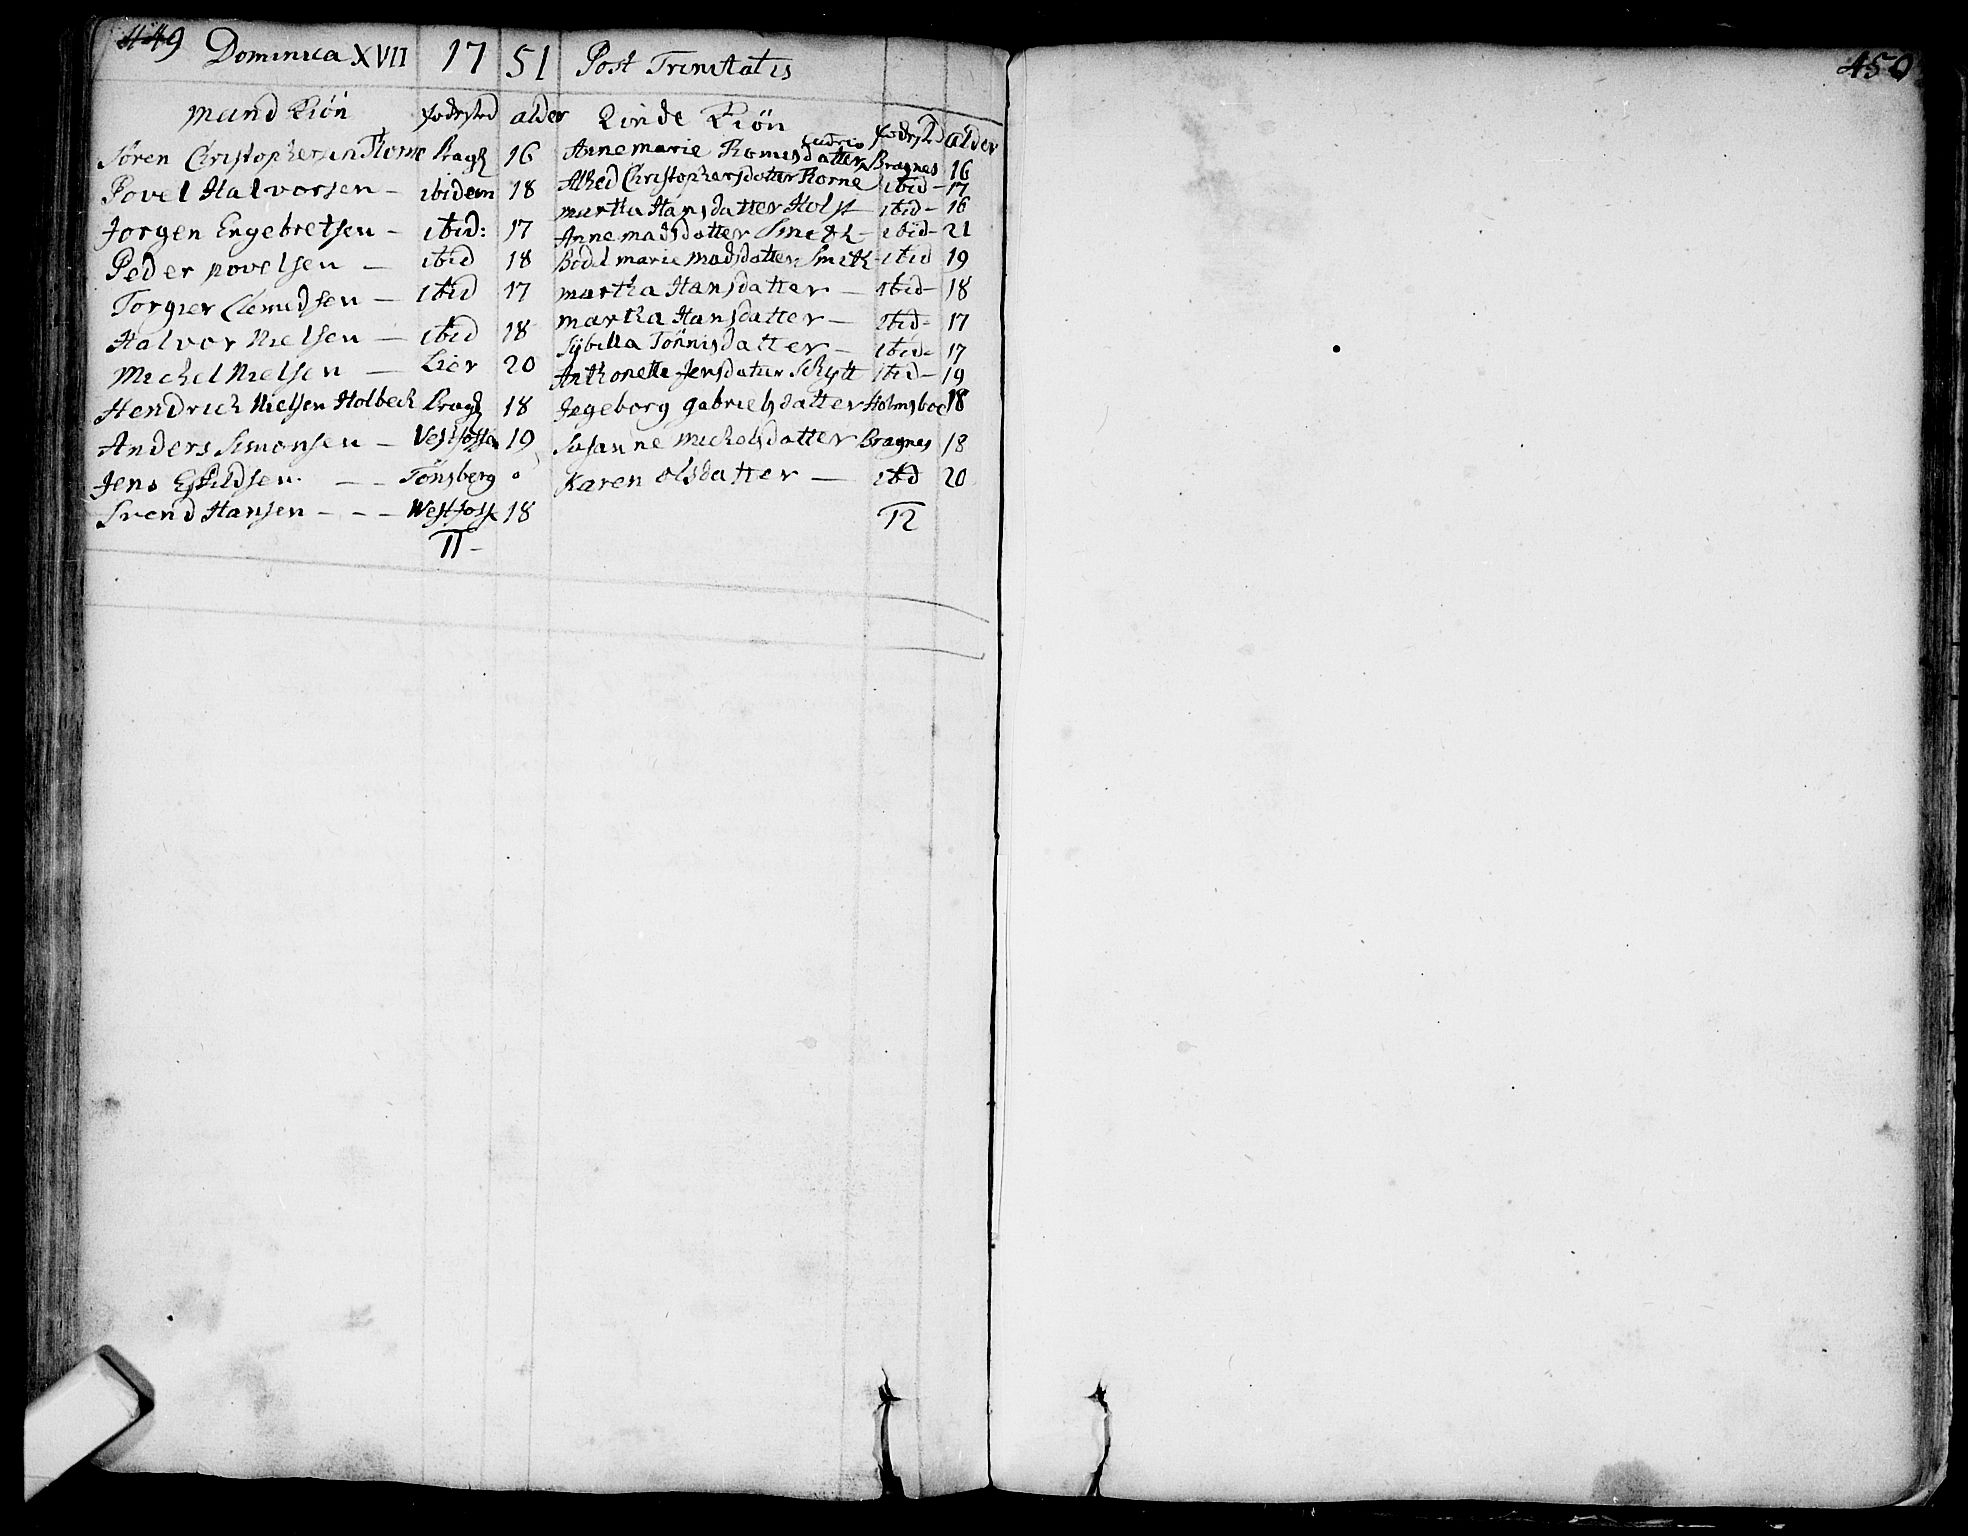 449 Dominica XVII 17 51 Post Trinitatis
450
Mand Kiön fødested alder
Sören Christophersen Bragn 16
Povel Halvorsen – ibidem 18
Jorgen Engebretsen – ibid: 17
Peder povelsen – ibid 18
Torgier Clemidsen – ibid 17
Halvor Nielsen – ibid 18
Michel Nielsen – Lier 20
Hendrich Nielsen Holbech Bragn 18
Anders Simonsen – Vestfossen 19
Jens Eskildsen. – – Tönsberg 0
Svend Hansen – – – Westfoss 18
11 –
Qvinde Kiön fødested alder
Anne marie Bragnes 16
Christophersdatter ibid – 17
martha Hansdatter Holst ibid – 16
Anne madsdatter Smith – ibid – 21
Bodil marie madsdatter Smith – ibid 19
martha Hansdatter – ibid – 18
martha Hansdatter – ibid – 17
Sÿbilla Tönnisdatter – ibid – 17
Anthonette Jensdatter Schytt ibid – 19
Jngeborg gabrielsdatter Holmsboe 18
Susanne Michelsdatter Bragnes 18
Karen olsdatter – ibid 20
12